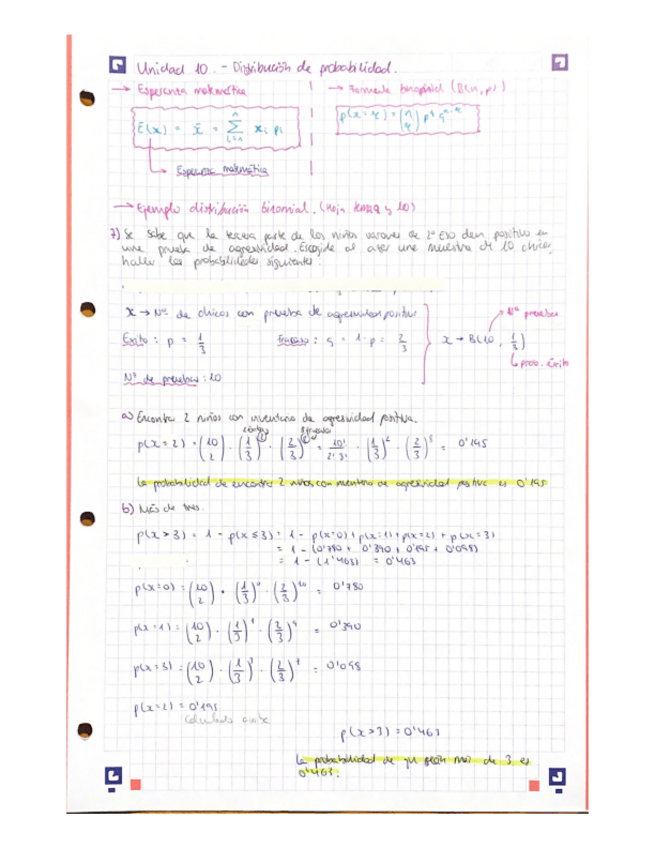 Unidad 10. - Distribución de probabilidad.
→ Esperanza matemática
→ Formula binomial (B(n, p))
E(x) = x̄ = Σ xi pi
p(x = q) = (n q) p^q q^n-q
↳ Esperanza matemática
→ Ejemplo distribución binomial. (Hoja tema 9 y 10)
7) Se sabe que la tercera parte de los niños varones de 2º ESO dan positivo en
una prueba de agresividad. Escogida al azar una muestra de 10 chicos,
hallar las probabilidades siguientes:
x → Nº de chicos con prueba de agresividad positiva
Exito: p = 1/3
Fracaso: q = 1 - p = 2/3
x → B(10, 1/3)
Nº pruebas
↳ prob. éxito
Nº de pruebas: 10
a) Encontrar 2 niños con inventario de agresividad positiva.
p(x = 2) = (10 2) · (1/3)^2 · (2/3)^8 = 10!/2! 8! · (1/3)^2 · (2/3)^8 = 0'195
La probabilidad de encontrar 2 niños con inventario de agresividad positiva es 0'195
b) Más de tres.
p(x > 3) = 1 - p(x ≤ 3) = 1 - p(x=0) + p(x=1) + p(x=2) + p(x=3)
= 1 - (0'780 + 0'390 + 0'195 + 0'098)
= 1 - (1'463) = 0'463
p(x=0) = (10 2) · (1/3)^0 · (2/3)^10 = 0'780
p(x=1) = (10 2) · (1/3)^1 · (2/3)^9 = 0'390
p(x=3) = (10 2) · (1/3)^3 · (2/3)^7 = 0'098
p(x=2) = 0'195
Calculado arriba
p(x>3) = 0'463
La probabilidad de que sean más de 3 es
0'463.